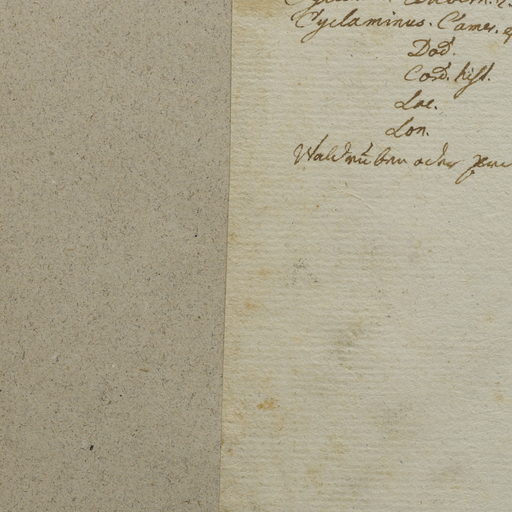 Cyclaminus. Camer.
Dod.
Cord. hist.
Lac.
Lon.
Waldrüben oder